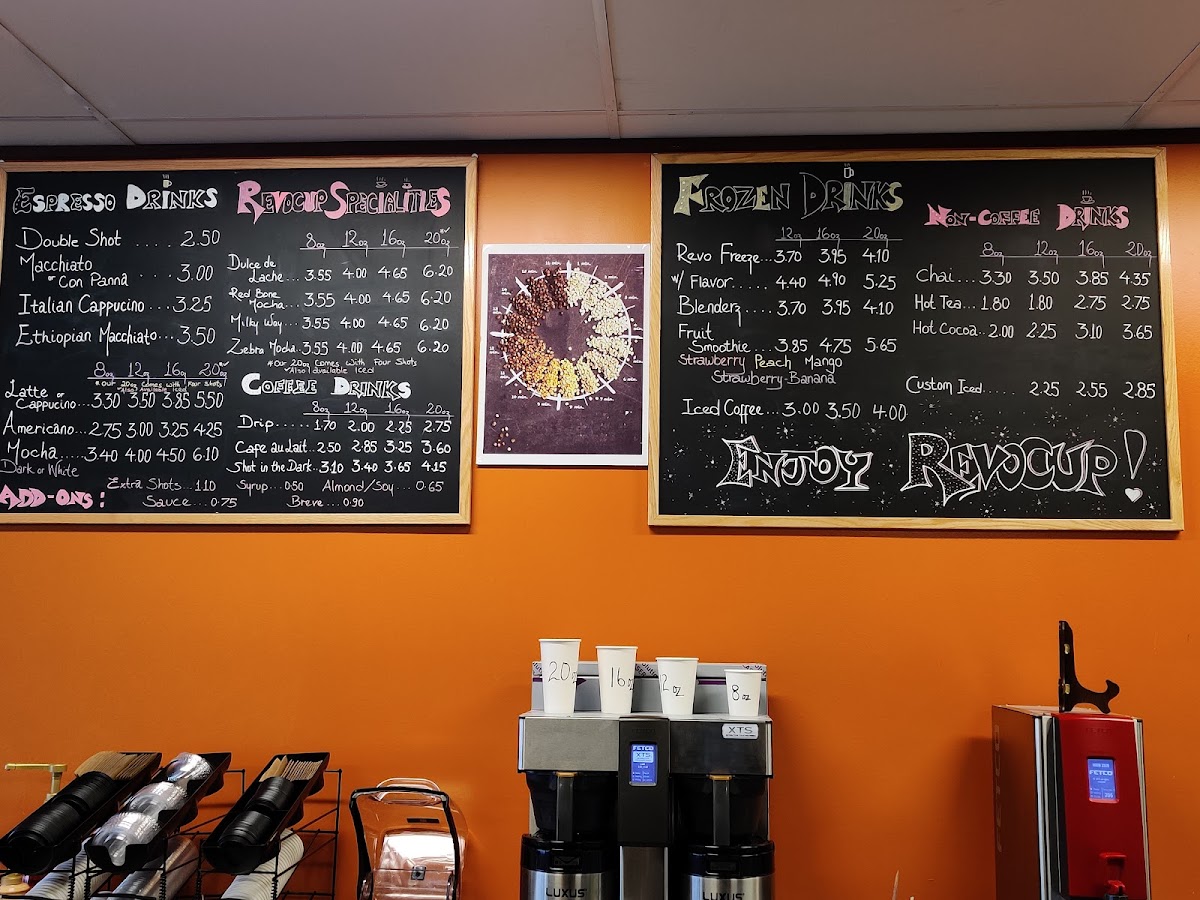 ESPRESSO DRINKS
Double Shot .... 2.50
Macchiato
or Con Panna .... 3.00
Italian Cappucino ... 3.25
Ethiopian Macchiato... 3.50
8oz 12oz 16oz 20oz
*Our 20oz Comes with Four Shots
*Also Available Iced
Latte or
Cappucino... 3.30 3.50 3.85 5.50
Americano... 2.75 3.00 3.25 4.25
Mocha..... 3.40 4.00 4.50 6.10
Dark or White
ADD-ONS:
Extra Shots... 1.10
Sauce... 0.75
REVOCUP SPECIALITIES
8oz 12oz 16oz 20oz
Dulce de
Lache.... 3.55 4.00 4.65 6.20
Red Bone
Mocha... 3.55 4.00 4.65 6.20
Milky Way... 3.55 4.00 4.65 6.20
Zebra Mocha. 3.55 4.00 4.65 6.20
*Our 20oz Comes with Four Shots
*Also available Iced
COFFEE DRINKS
8oz 12oz 16oz 20oz
Drip...... 1.70 2.00 2.25 2.75
Cafe au Lait.. 2.50 2.85 3.25 3.60
Shot in the Dark.. 3.10 3.40 3.65 4.15
Syrup... 0.50 Almond/Soy... 0.65
Breve... 0.90
FROZEN DRINKS
12oz 16oz 20oz
Revo Freeze... 3.70 3.95 4.10
w/ Flavor...... 4.40 4.90 5.25
Blenderz..... 3.70 3.95 4.10
Fruit
Smoothie.... 3.85 4.75 5.65
Strawberry Peach Mango
Strawberry-Banana
Iced Coffee... 3.00 3.50 4.00
NON-COFFEE DRINKS
8oz 12oz 16oz 20oz
Chai.... 3.30 3.50 3.85 4.35
Hot Tea.. 1.80 1.80 2.75 2.75
Hot Cocoa.. 2.00 2.25 3.10 3.65
Custom Iced.... 2.25 2.55 2.85
ENJOY REVOCUP!
20oz
16oz
12oz
8oz
XTS
FETCO
XTS
LUXUS
LUXUS
FETCO